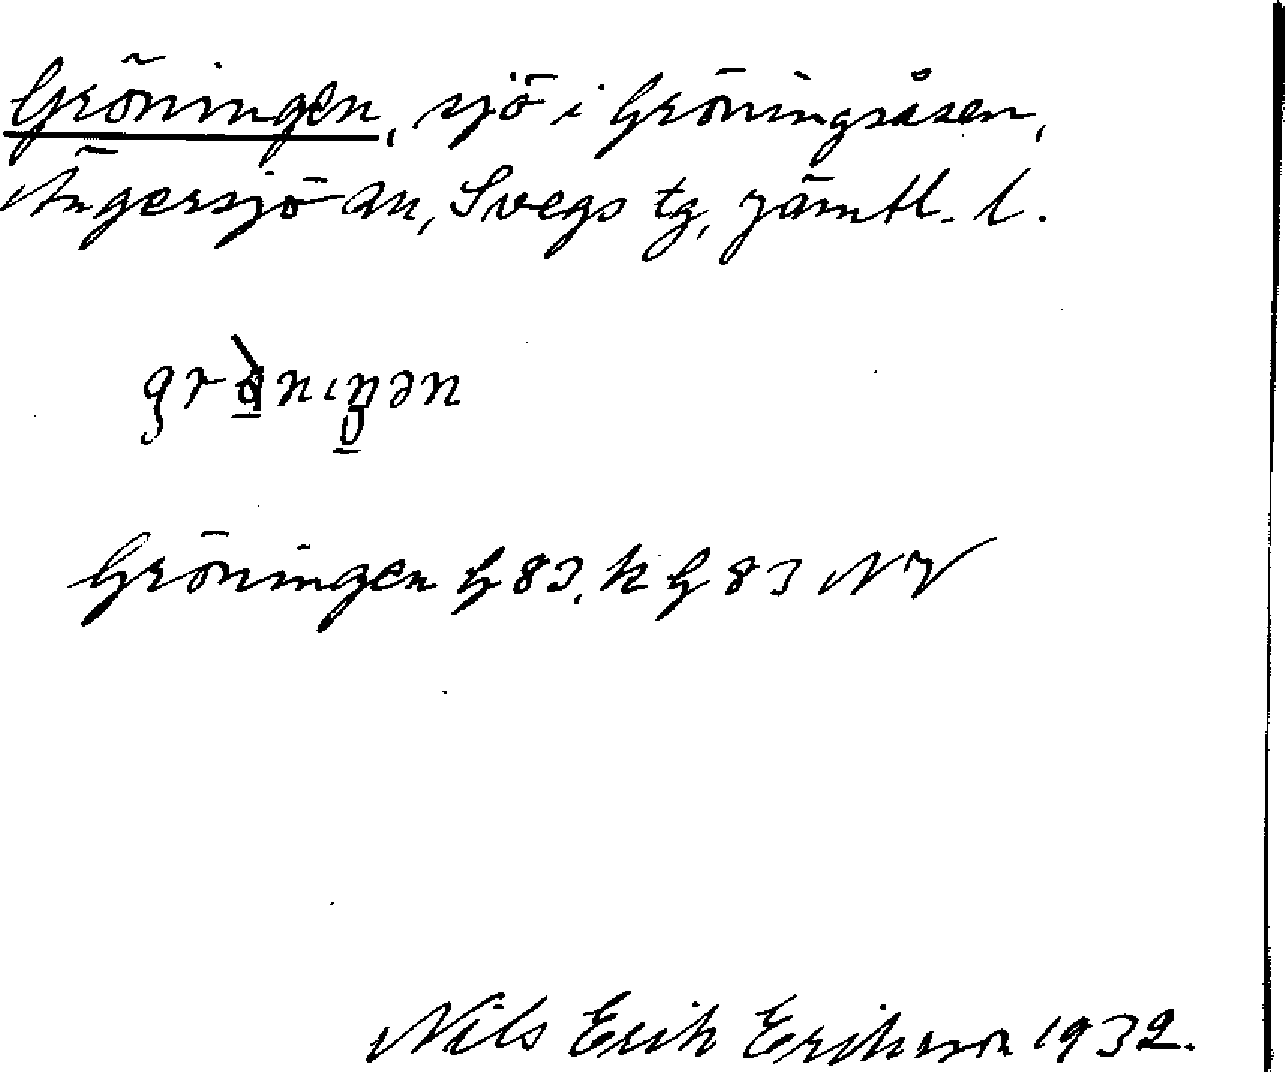 Gröningen, sjö i Gröningsåsen,
Ängersjö an, Svegs tg, Jämtl. l.
Gröningen G 83, k G 83 NV
Nils Erik Eriksson 1932.